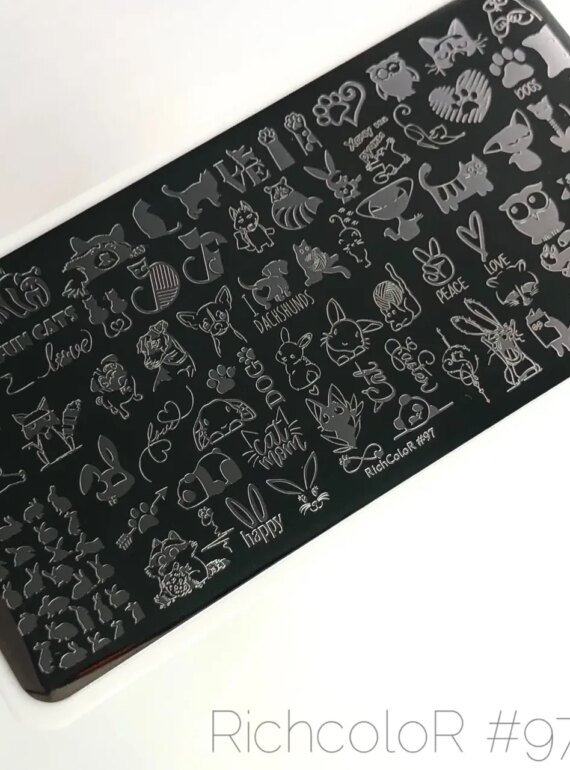 DOGS
LOVE
I
DACKSHUNDS
PEACE
LOVE
FUN CATS
love
DOGS
cat
mom
Easter
happy
RichColoR #97
RichcoloR #97